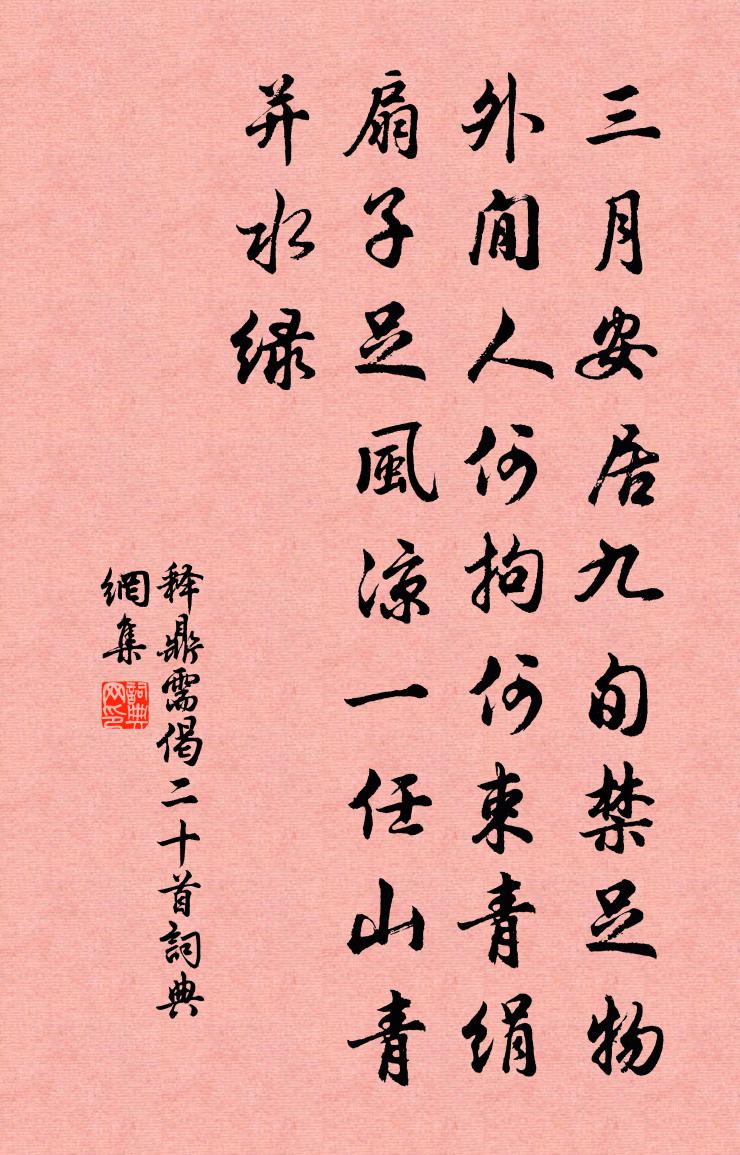 三月安居九旬禁足物
外閒人何拘何束青绢
扇子足風涼一任山青
并水绿
释鼎需偈二十首詞典
網集
詞典网印